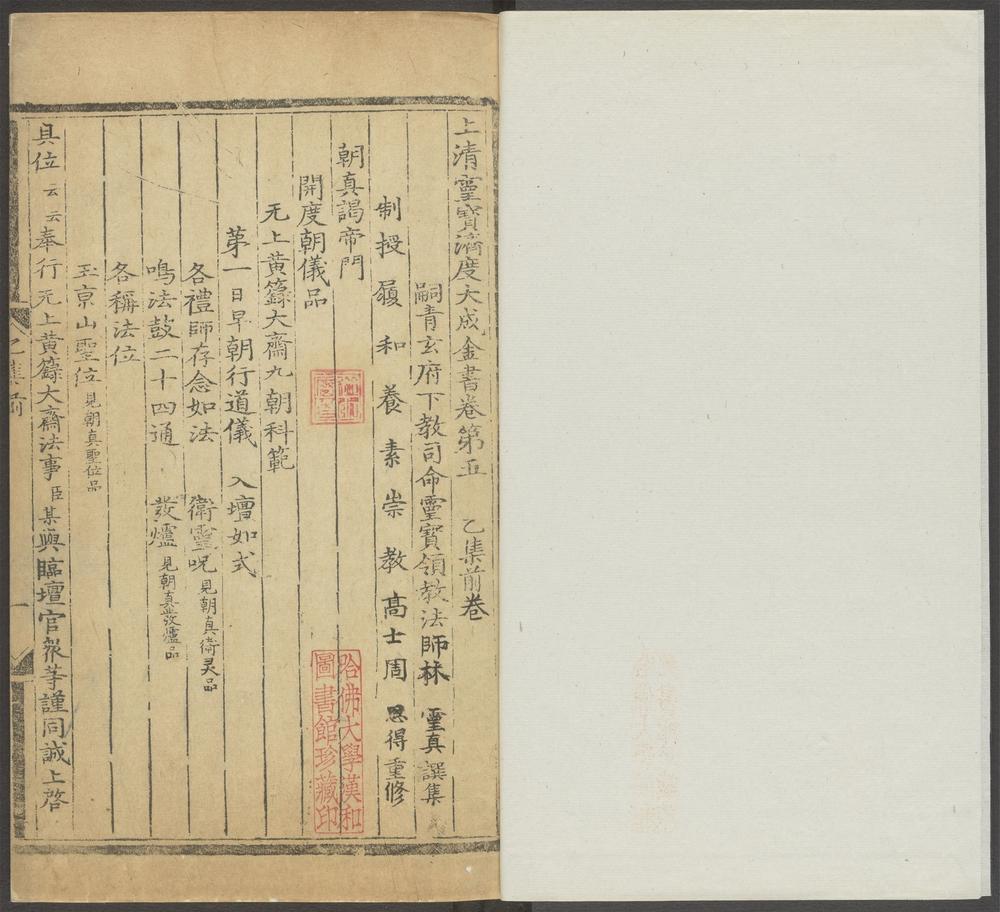 上清靈寳濟度大成金書卷第五 乙集前卷
嗣青玄府下教司命靈寳領教法師林 靈真譔集
制授履和養素崇教高士周 思得重修
朝真謁帝門
開度朝儀品
无上黄籙大齋九朝科範
第一日早朝行道儀 入壇如式
各禮師存念如法 衛靈呪 見朝真衛灵品
鳴法鼓二十四通 發爐 見朝真發爐品
各稱法位
玉京山聖位 見朝真聖位品
具位 云云 奉行无上黄籙大齋法事臣某與臨壇官衆等謹同誠上啓
乙集前
一
哈佛大學漢和
圖書館珍藏印